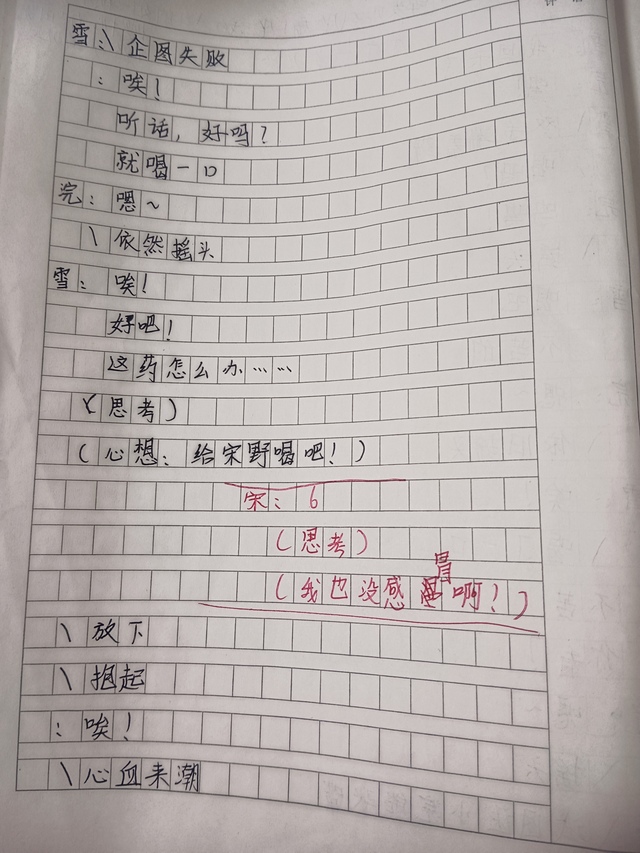 雪：\企图失败
：唉！
听话，好吗？
就喝一口
浣：嗯~
\依然摇头
雪：唉！
好吧！
这药怎么办……
（思考）
（心想：给宋野喝吧！）
宋：6
（思考）
（我也没感冒啊！）
\放下
\抱起
：唉！
\心血来潮